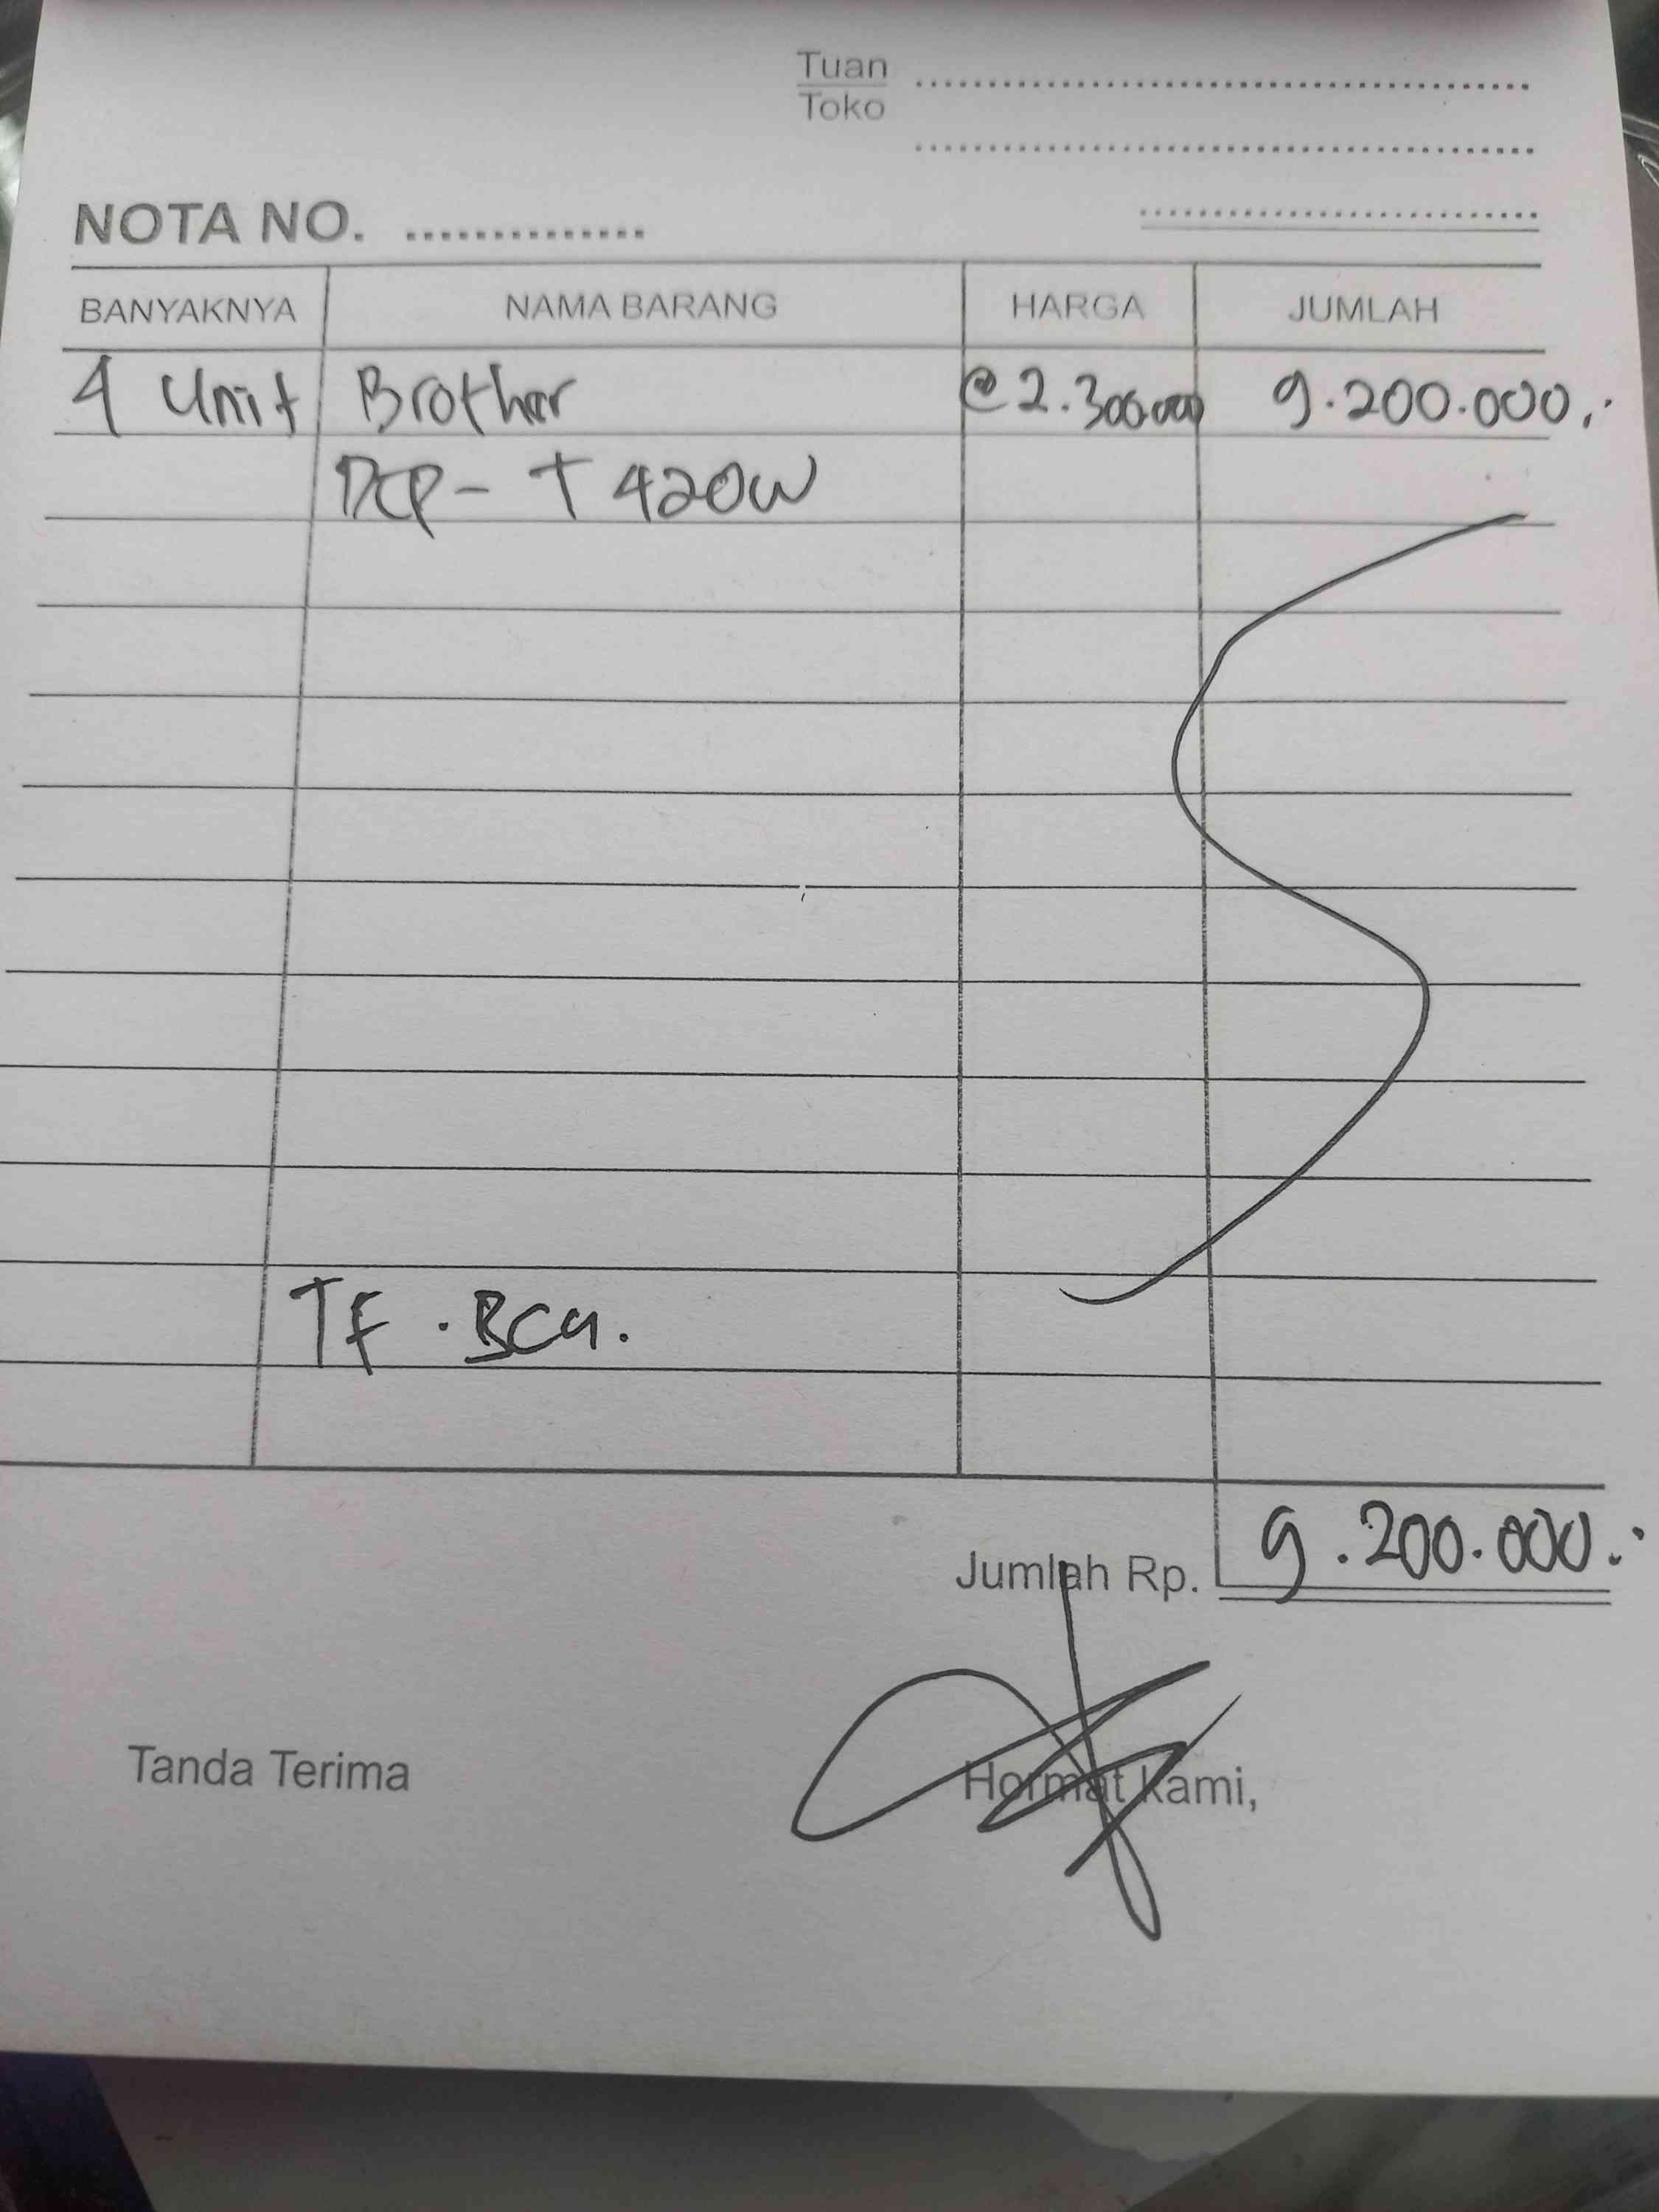 Tuan
Toko
NOTA NO. ..............
BANYAKNYA NAMA BARANG HARGA JUMLAH
4 Unit Brother @ 2.300.000 9.200.000,-
DCP - T 420W
TF . BCA.
Jumlah Rp. 9.200.000,-
Tanda Terima Hormat Kami,